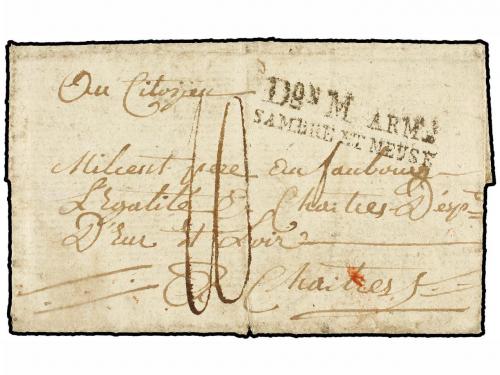 Au Citoyen
Dᵒⁿ M ARM.
SAMBRE ET MEUSE
Milcent père au faubourg
L'Egalité à Chartres Dépt
D'Eur et Loir
A Chartres